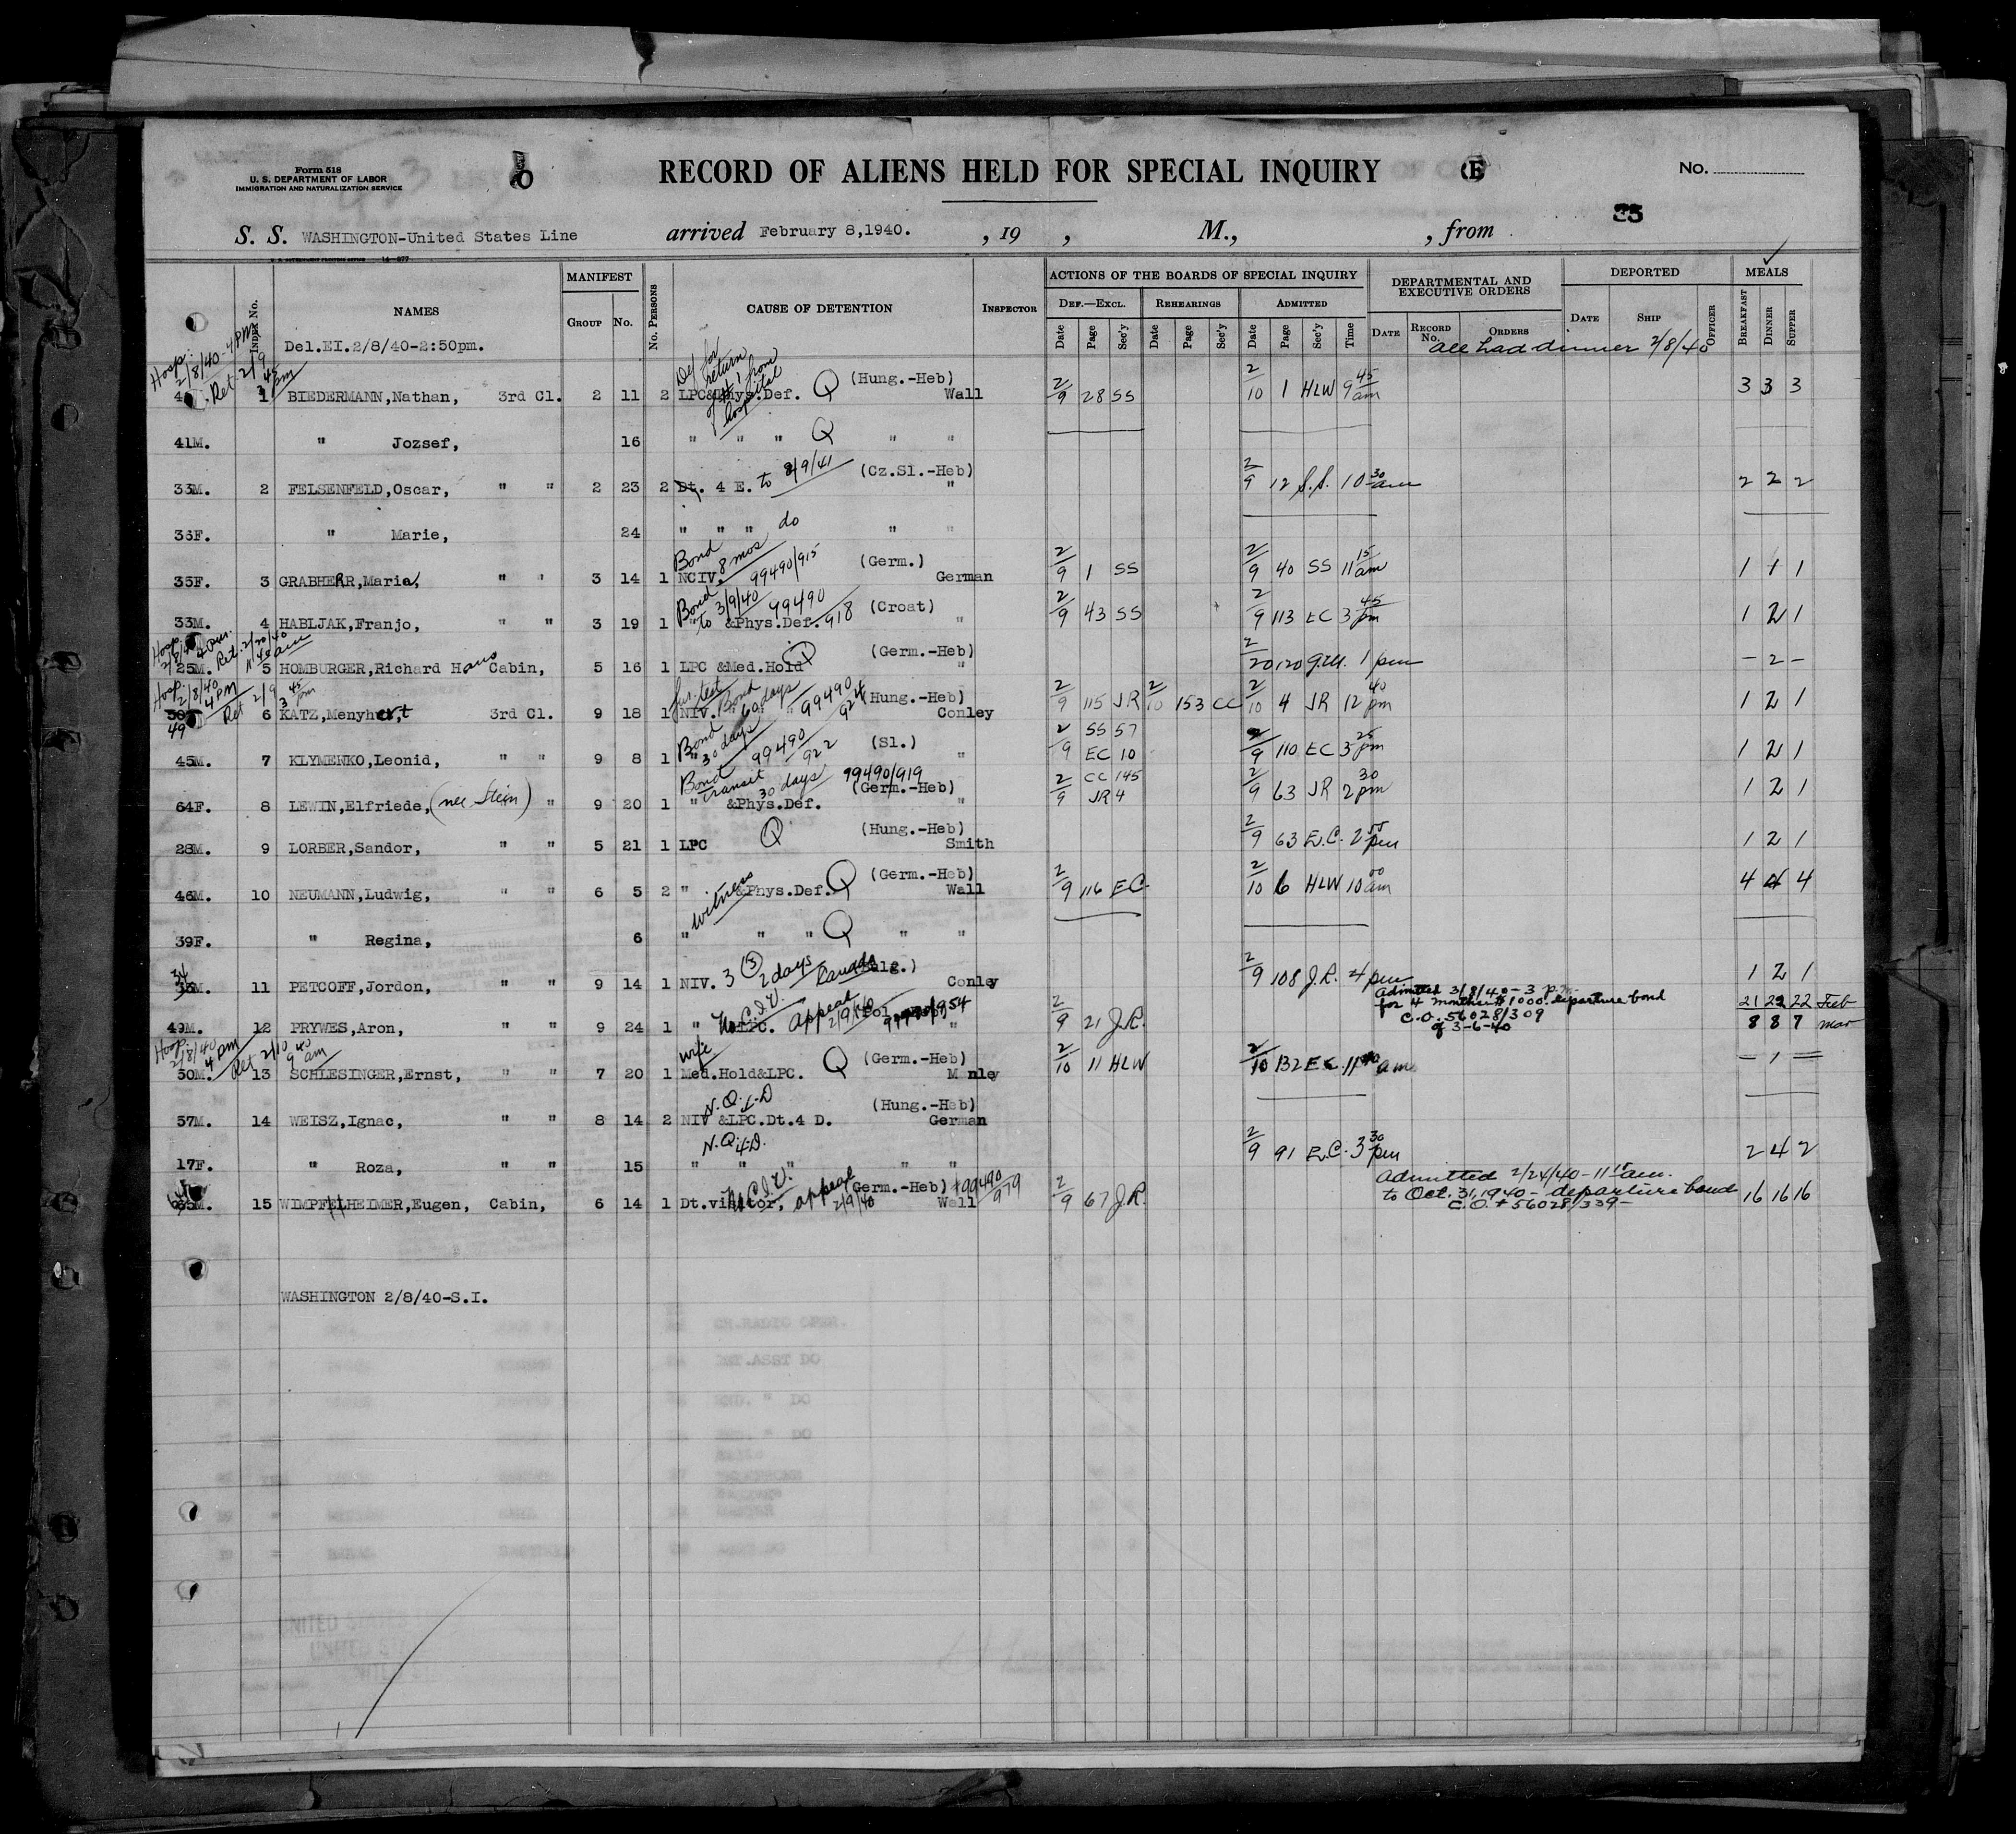 Form 518
U. S. DEPARTMENT OF LABOR
IMMIGRATION AND NATURALIZATION SERVICE
RECORD OF ALIENS HELD FOR SPECIAL INQUIRY
No.
35
S. S. WASHINGTON-United States Line arrived February 8,1940. , 19 , M., , from
MANIFEST ACTIONS OF THE BOARDS OF SPECIAL INQUIRY DEPARTMENTAL AND EXECUTIVE ORDERS DEPORTED MEALS
INDEX No. NAMES GROUP No. No. PERSONS CAUSE OF DETENTION INSPECTOR DEF.—EXCL. REHEARINGS ADMITTED
Date Page Sec'y Date Page Sec'y Date Page Sec'y Time DATE RECORD No. ORDERS DATE SHIP OFFICER BREAKFAST DINNER SUPPER
Del.EI.2/8/40-2:50pm. all had dinner 2/8/40
Hosp. 2/8/40-4 PM Ret 2/9 3 45 pm
Def for return of #1 from hospital
1 BIEDERMANN,Nathan, 3rd Cl. 2 11 2 LPC&Phys.Def. Q (Hung.-Heb) Wall 2/9 28 SS 2/10 1 HLW 9 45 am 3 3 3
41M. " Jozsef, 16 " " " Q " "
33M. 2 FELSENFELD,Oscar, " " 2 23 2 Dt. 4 E. to 8/9/41 (Cz.Sl.-Heb) " 2/9 12 S.S. 10 30 am 2 2 2
36F. " Marie, 24 " " " do " "
35F. 3 GRABHERR,Maria, " " 3 14 1 NCIV. Bond 8 mos 99490/915 (Germ.) German 2/9 1 SS 2/9 40 SS 11 15 am 1 1 1
33M. 4 HABLJAK,Franjo, " " 3 19 1 " &Phys.Def. Bond to 3/9/40 99490 918 (Croat) " 2/9 43 SS 2/9 113 EC 3 45 pm 1 2 1
Hosp. 2/8/40 4 pm. Ret. 2/20/40 11 40 am
25M. 5 HOMBURGER,Richard Hans Cabin, 5 16 1 LPC &Med.Hold Q (Germ-Heb) " 2/20 120 G.M. 1 pm - 2 -
Hosp. 2/8/40 4 PM Ret 2/9 3 45 pm
49 6 KATZ,Menyhert, 3rd Cl. 9 18 1 NIV. Bond 60 days 99490 924 (Hung.-Heb) Conley 2/9 115 JR 2/10 153 CC 2/10 4 JR 12 40 pm 1 2 1
45M. 7 KLYMENKO,Leonid, " " 9 8 1 " Bond 30 days 99490 922 (Sl.) " 2/9 SS 57 EC 10 2/9 110 EC 3 25 pm 1 2 1
64F. 8 LEWIN,Elfriede, (nee Stein) " 9 20 1 " &Phys.Def. Bond transit 30 days 99490/919 (Germ.-Heb) " 2/9 CC 145 JR 4 2/9 63 JR 2 30 pm 1 2 1
28M. 9 LORBER,Sandor, " " 5 21 1 LPC Q (Hung.-Heb) Smith 2/9 63 E.C. 2 55 pm 1 2 1
46M. 10 NEUMANN,Ludwig, " " 6 5 2 " &Phys.Def. witness Q (Germ.-Heb) Wall 2/9 116 EC 2/10 6 HLW 10 00 am 4 4 4
39F. " Regina, 6 " " " Q " "
34 11 PETCOFF,Jordon, " " 9 14 1 NIV. 3 (3) 2 days Canada Conley 2/9 108 J.R. 4 pm 1 2 1
49M. 12 PRYWES,Aron, " " 9 24 1 " LPC. N.C.I.V. appeal 2/9/40 " 2/9 21 J.R. 21 22 22 Feb
8 8 7 mar
Admitted 3/8/40-3 p.m.
for 4 months $1000. departure bond
C.O. 56028/309
of 3-6-40
Hosp. 2/8/40 4 PM Ret 2/10 9 40 am
50M. 13 SCHLESINGER,Ernst, " " 7 20 1 Med.Hold&LPC. wife Q (Germ-Heb) Manley 2/10 11 HLW 2/10 132 EC 11 am - 1 -
57M. 14 WEISZ,Ignac, " " 8 14 2 NIV &LPC.Dt.4 D. N.Q. 4-D (Hung.-Heb) German
17F. " Roza, " " 15 " " " N.Q. 4-D. " " 2/9 91 E.C. 3 30 pm 2 4 2
15 WIMPFHEIMER,Eugen, Cabin, 6 14 1 N.C.I.V. appeal 2/9/40 (Germ.-Heb) 99490 979 Wall 2/9 67 J.R. 16 16 16
Admitted 2/24/40-11 15 am.
to Oct. 31, 1940 - departure bond
C.O. # 56028/339-
WASHINGTON 2/8/40-S.I.